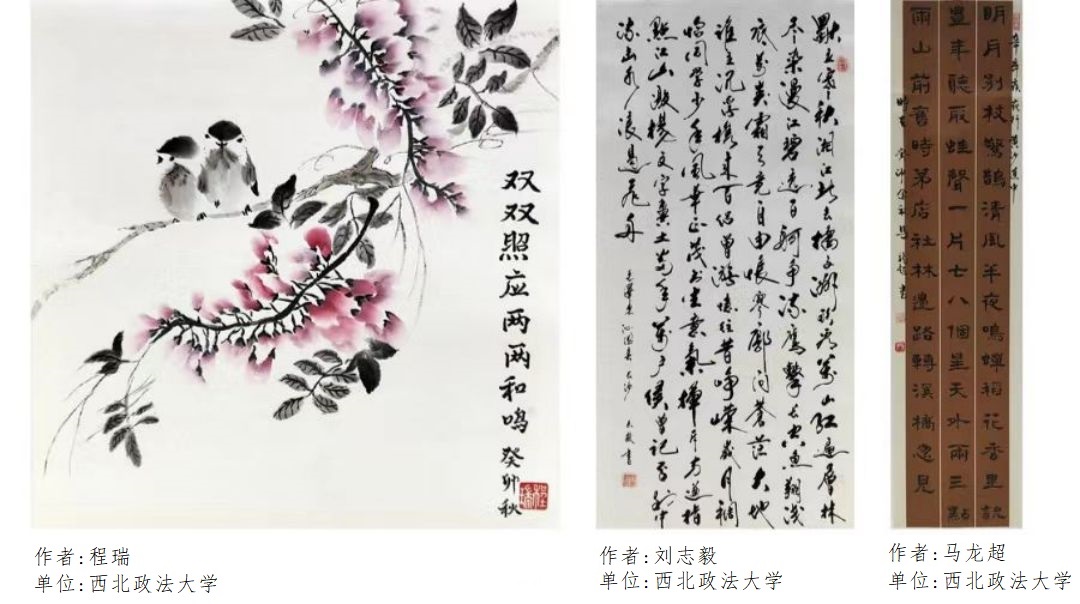 双双照应两两和鸣
癸卯秋
獨立寒秋湘江北去橘子洲頭看萬山紅遍層林
尽染漫江碧透百舸争流鷹擊长空鱼翔浅
底萬类霜天竞自由悵寥廓问苍茫大地
谁主沉浮携来百侣曾游忆往昔峥嵘岁月稠
恰同学少年风华正茂书生意氣揮斥方遒指
點江山激揚文字糞土當年萬户侯曾记否到中
流击水浪遏飞舟
毛泽东沁园春长沙
明月別枝驚鵲清風半夜鳴蟬稻花香里說
豊年聽取蛙聲一片七八個星天外兩三點
雨山前舊時茅店社林邊路轉溪橋忽見
作者:程瑞
单位:西北政法大学
作者:刘志毅
单位:西北政法大学
作者:马龙超
单位:西北政法大学